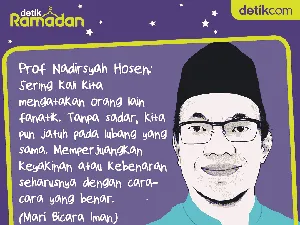 detik
Ramadan
detikcom
Prof Nadirsyah Hosen:
Sering Kali Kita
mengatakan orang lain
fanatik. Tanpa sadar, kita
pun jatuh pada lubang yang
sama. Memperjuangkan
Keyakinan atau Kebenaran
seharusnya dengan cara-
cara yang benar.
(Mari Bicara Iman)